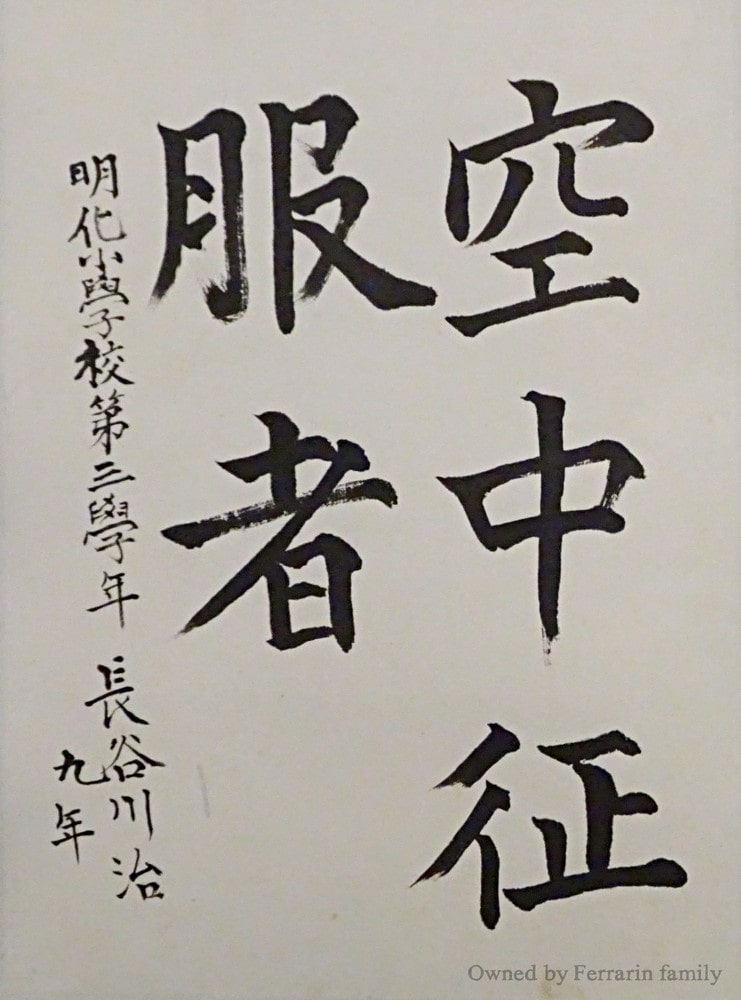 空中征
服者
明化小學校第三學年 長谷川治
九年
Owned by Ferrarin family